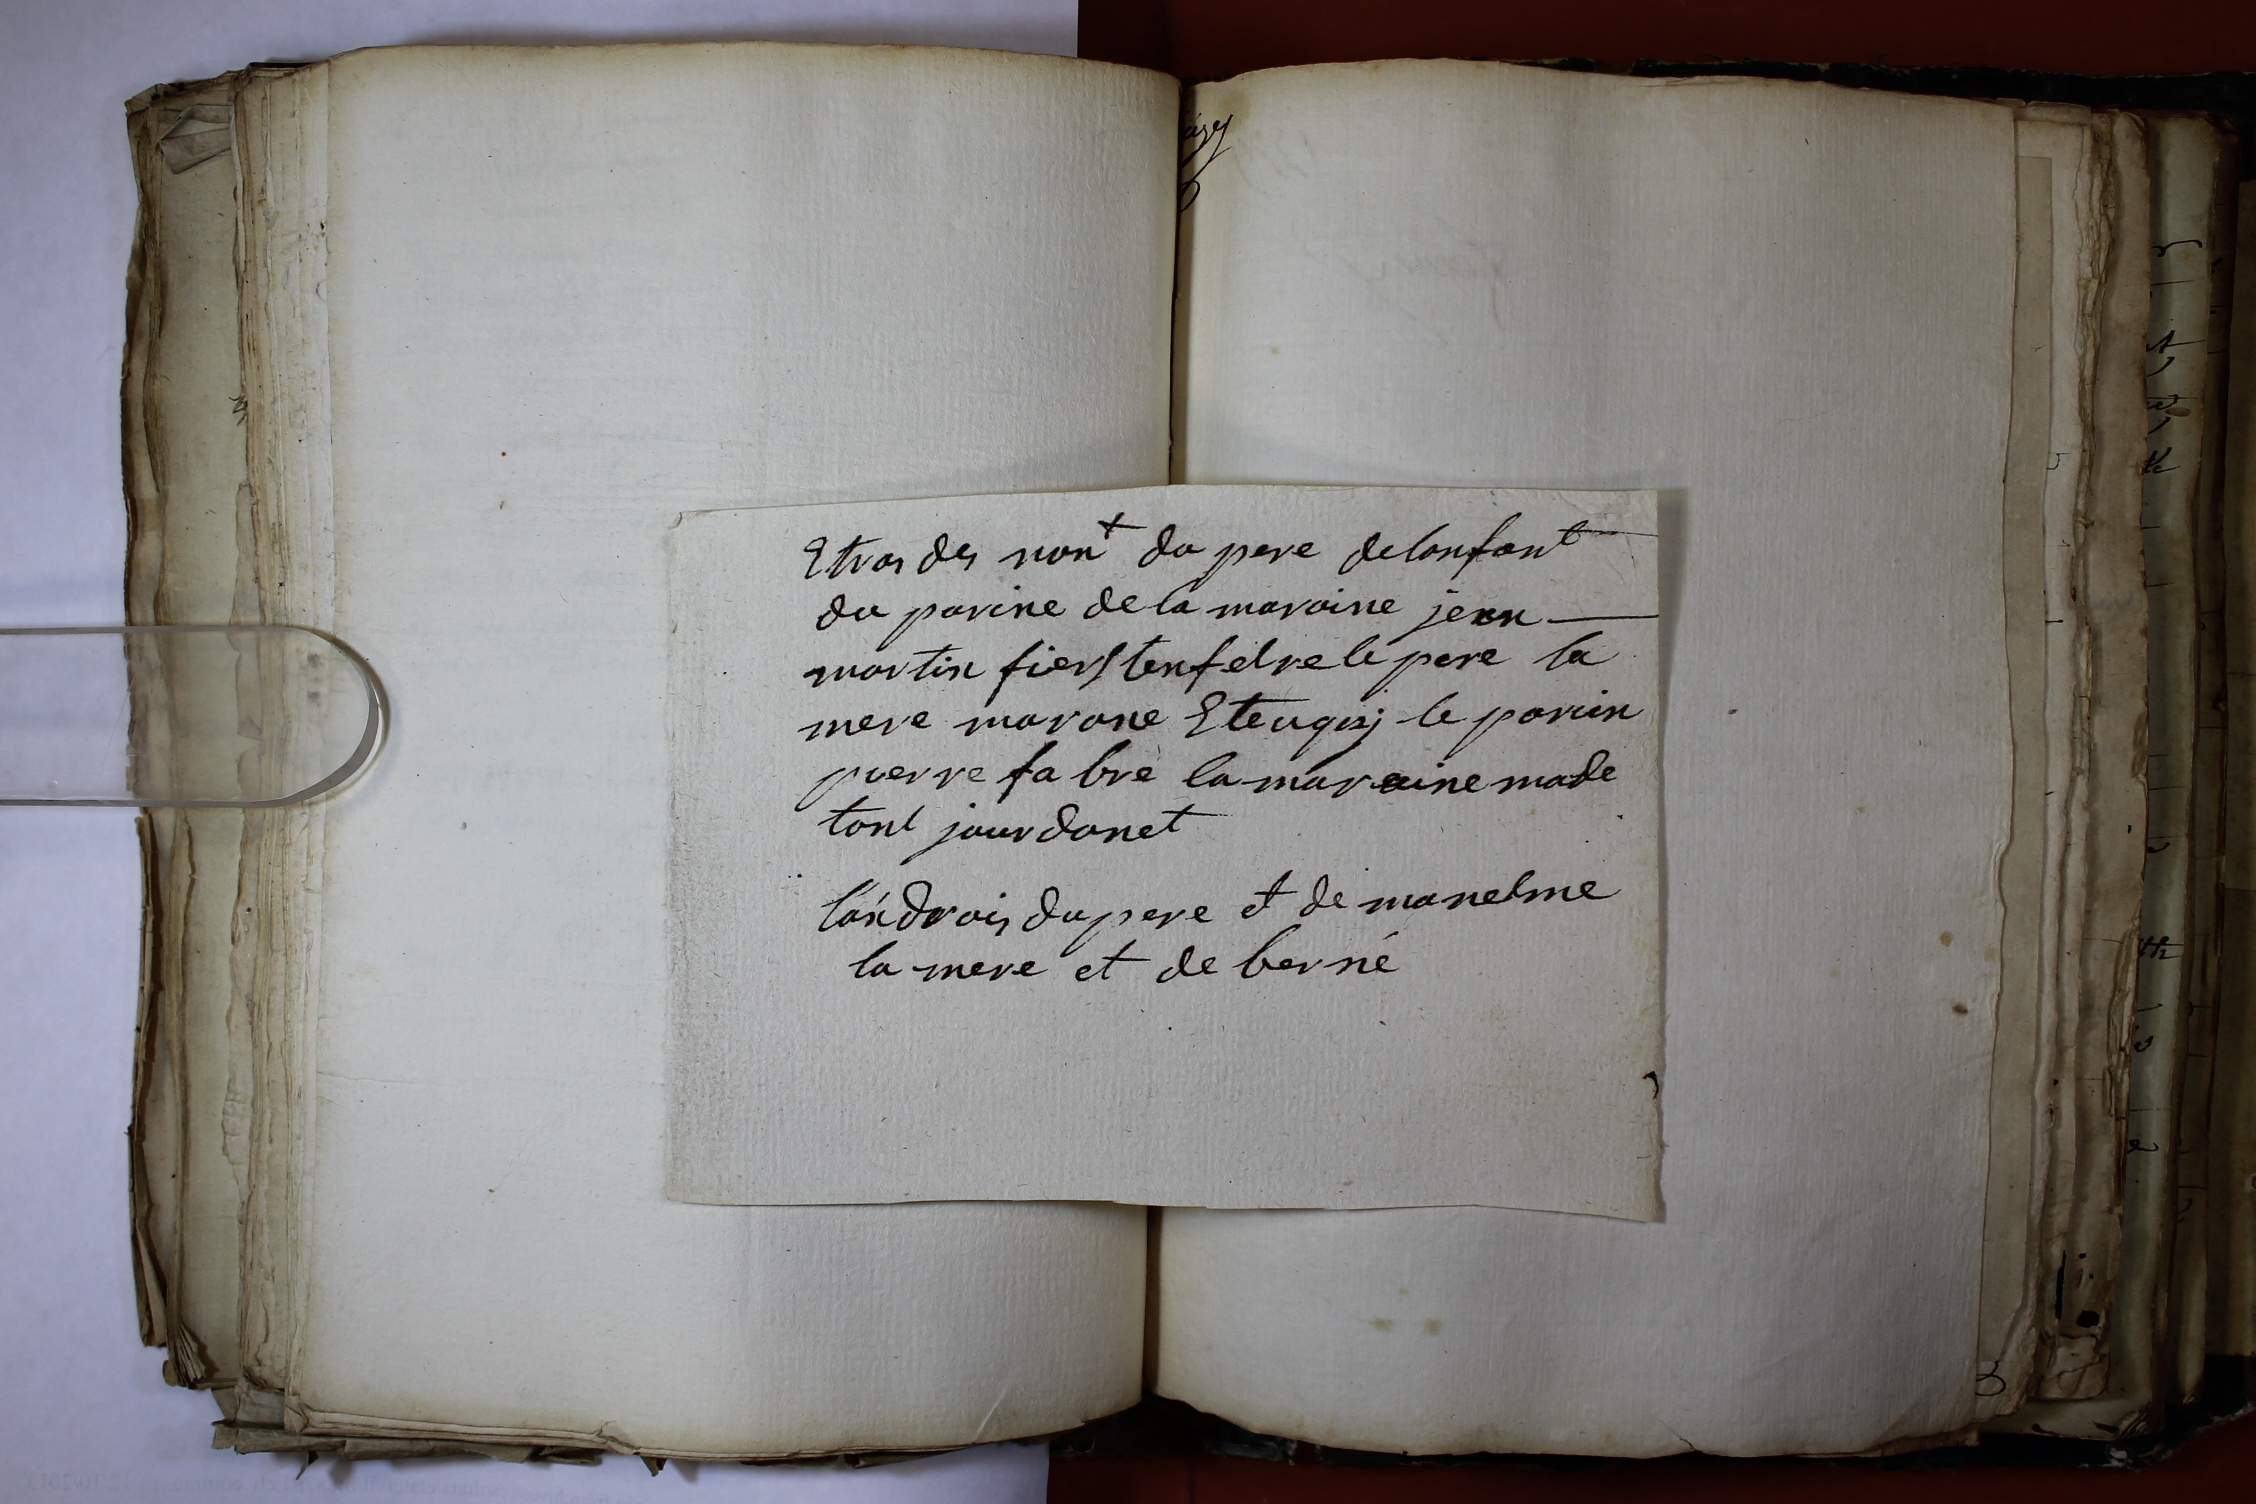 Etras des nont du pere delanfant
du parine de la maraine jean
martin fierstenfelre le pere la
mere marane Eteuqisj le parien
pierre fa bre la maraine made
tont jourdanet
l'androis du pere et de manelme
la mere et de berné